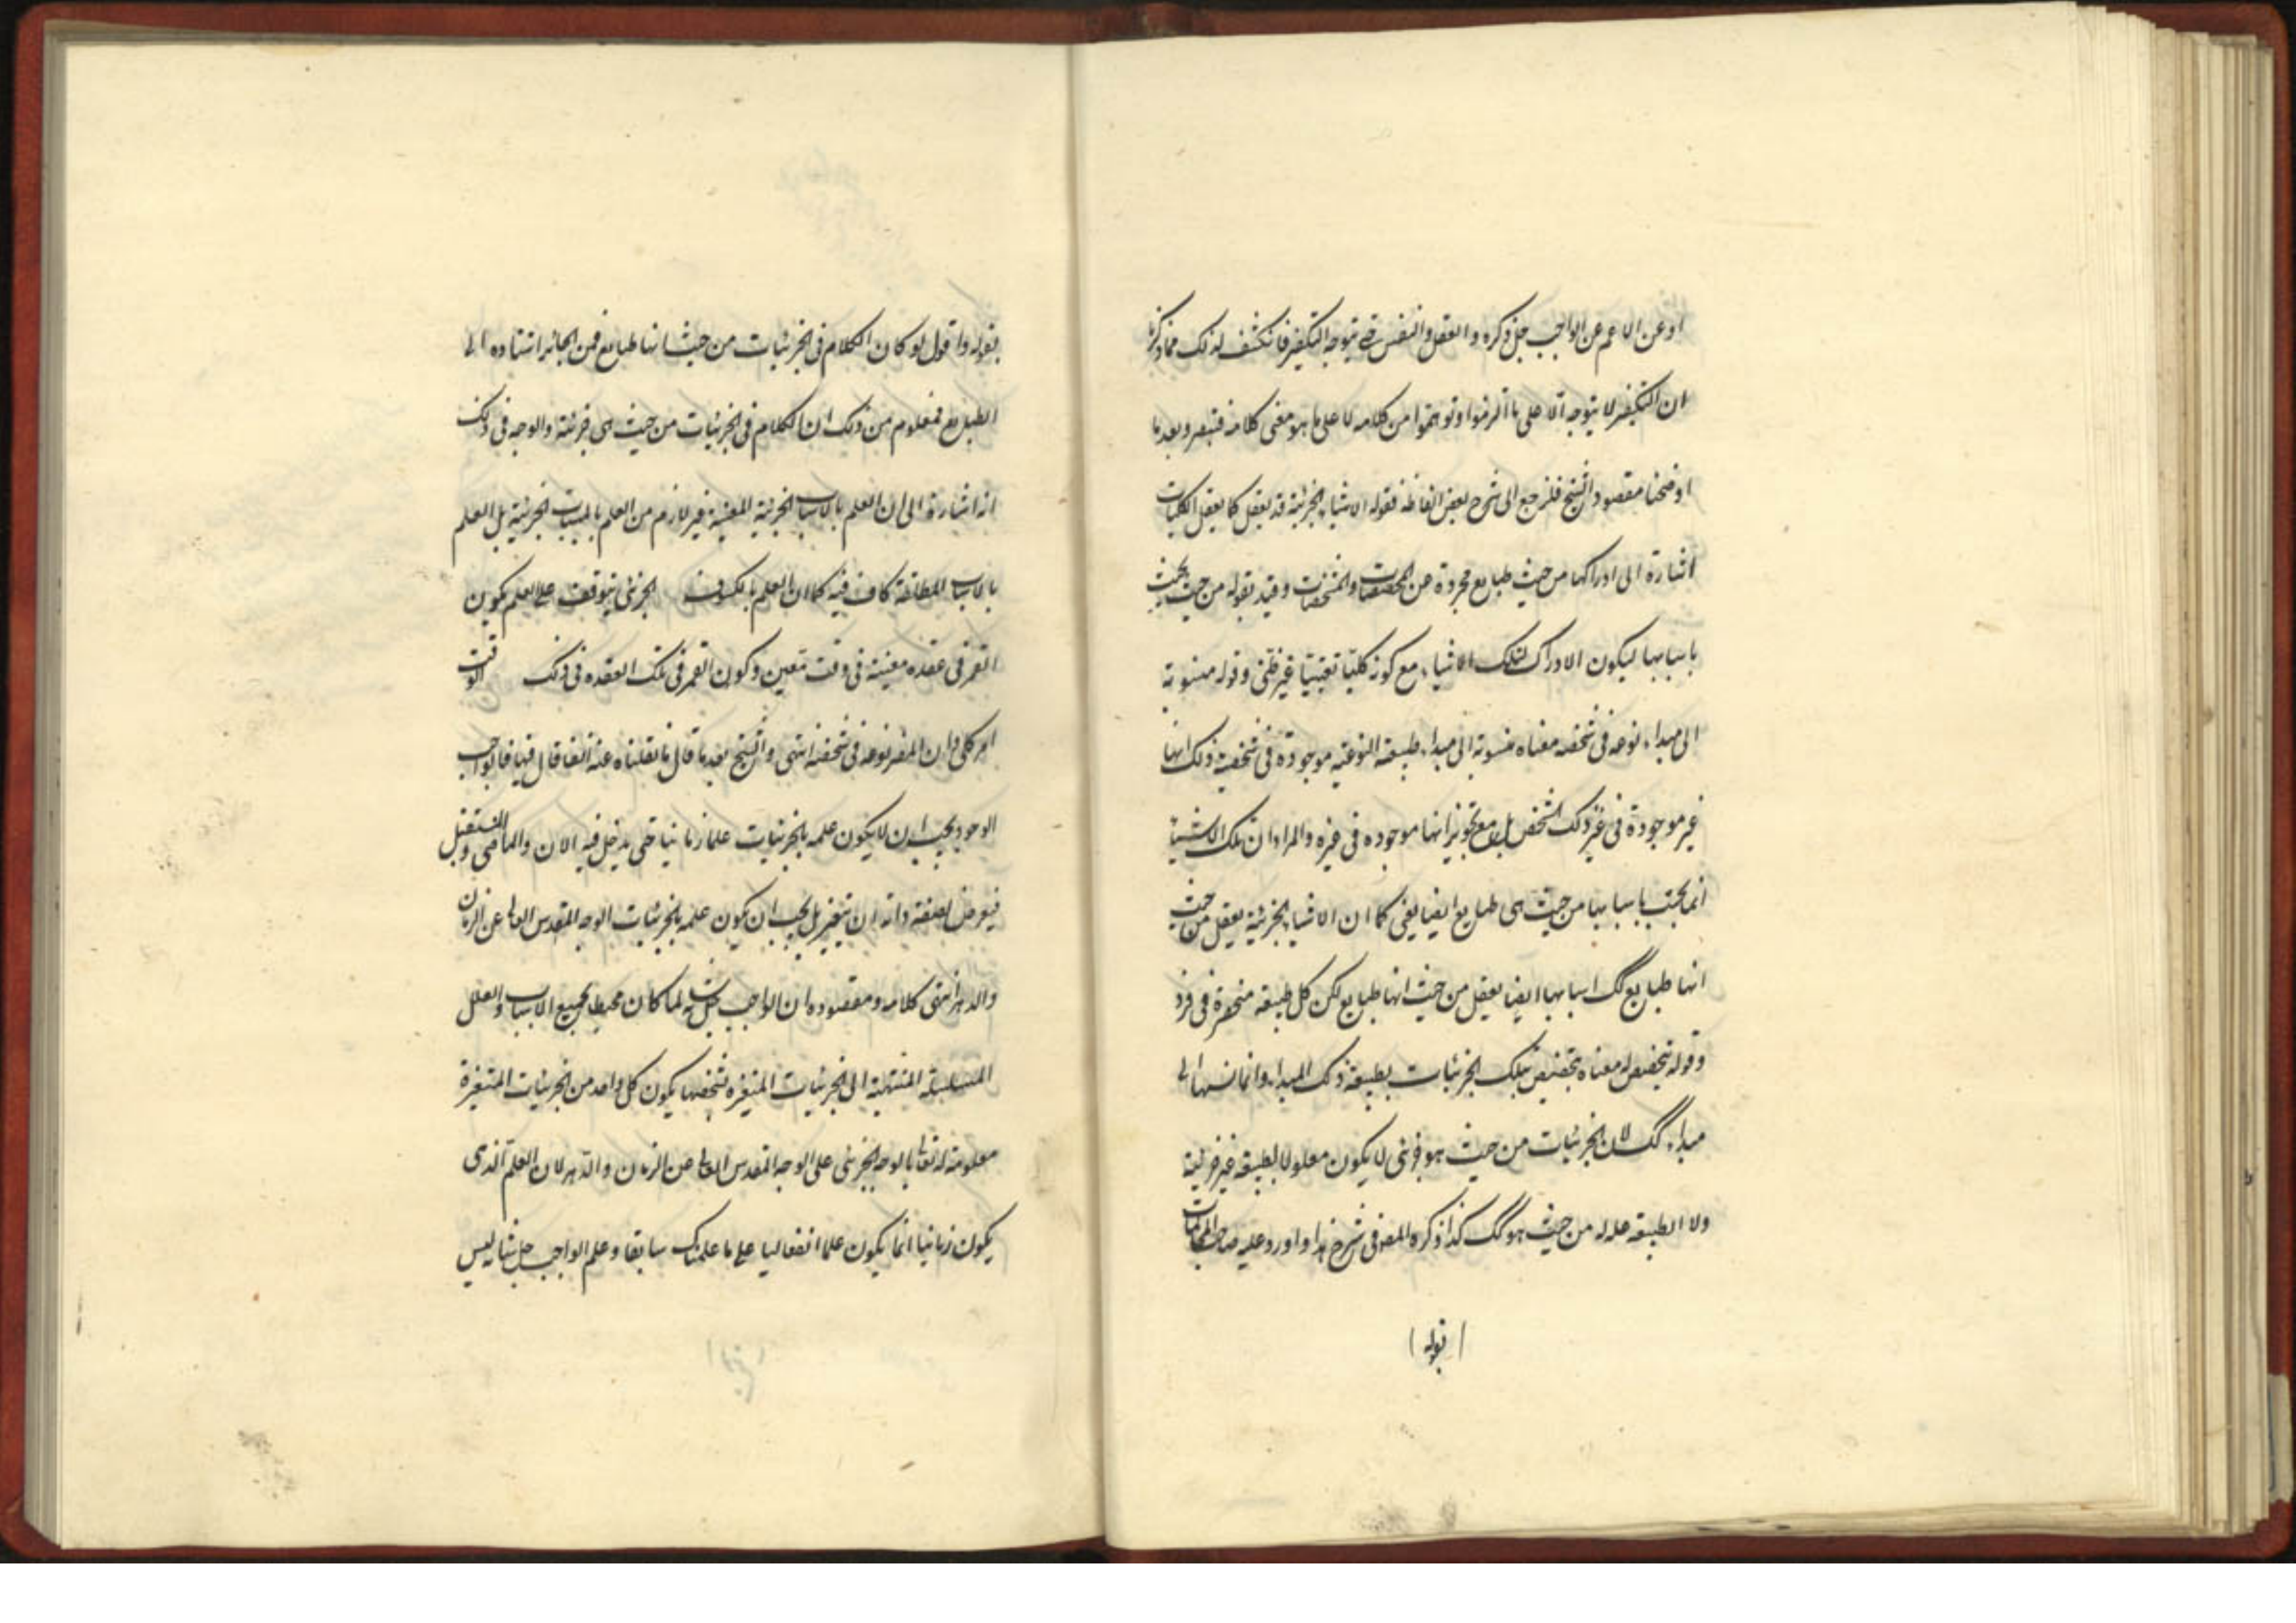 او عن الاعم عن الواجب جل ذكره والعقل والنفس حتى يتوجه التكفير فانكشف لذلك مما ذكرنا
ان التكفير لا يتوجه الا على ما الزموا وتوهموا من كلامه لا على ما هو معنى كلامه فتبصر وبعد ما
اوضحنا مقصود الشيخ فلنرجع الى شرح بعض الفاظه فقوله الاشياء الجزئية قد يعقل كما يعقل الكليات
اشارة الى ادراكها من حيث طبايع مجردة عن المخصصات والمشخصات وقيد بقوله من حيث يجب
باسبابها ليكون الادراك لتلك الاشياء مع كونه كليا يقينيا غير ظنى وقوله منسوبة
الى مبداء نوعه فى شخصه معناه منسوبة الى مبداء طبيعته النوعية موجودة فى شخصية ذلك انها
غير موجودة فى غير ذلك الشخص بل مع تجويز انها موجوده فى غيره والمراد ان تلك الاشياء
انما يجب باسبابها من حيث هى طبايع ايضا يعنى كما ان الاشياء الجزئية يعقل من حيث
انها طبايع كك اسبابها ايضا يعقل من حيث انها طبايع لكن كل طبيعة منحصرة فى فرد
وقوله يتخصص له معناه يتخصص تلك الجزئيات بطبيعة ذلك المبداء وانما نسبها الى
مبداء كك لان الجزئيات من حيث هو جزئى لا يكون معلولا لطبيعة غير جزئية
ولا الطبيعة علة له من حيث هو كك كذا ذكره المص فى شرح هذا واورد عليه صاحب المحاكمات
بقوله
بقوله واقول لو كان الكلام فى الجزئيات من حيث انها طبايع فمن الجائز استناده الى
الطبايع فمعلوم من ذلك ان الكلام فى الجزئيات من حيث هى جزئية والوجه فى ذلك
انه اشارة الى ان العلم بالاسباب الجزئية المعينة غير لازم من العلم بالمسببات الجزئية بل العلم
بالاسباب المطلقة كاف فيه كما ان العلم بالكسوف الجزئى يتوقف على العلم بكون
القمر فى عقده معينة فى وقت معين وكون القمر فى تلك العقده فى ذلك الوقت
امر كلى وان انحصر نوعه فى شخصه انتهى والشيخ بعد ما قال ما نقلناه عنه آنفا قال فيها فالواجب
الوجود يجب ان لا يكون علمه بالجزئيات علما زمانيا حتى يدخل فيه الان والماضى والمستقبل
فيعرض لصفة ذاته ان يتغير بل يجب ان يكون علمه بالجزئيات الوجه المقدس العالى عن الزمان
والدهر انتهى كلامه ومقصوده ان الواجب جل شانه لما كان محيط بجميع الاسباب والعلل
المتسلسلة المنتهية الى الجزئيات المتغيره بشخصها يكون كل واحد من الجزئيات المتغيرة
معلومة له تعالى بالوجه الجزئى على الوجه المقدس العالى عن الزمان والدهر لان العلم الذى
يكون زمانيا انما يكون علما انفعاليا على ما علمناك سابقا وعلم الواجب جل شانه ليس